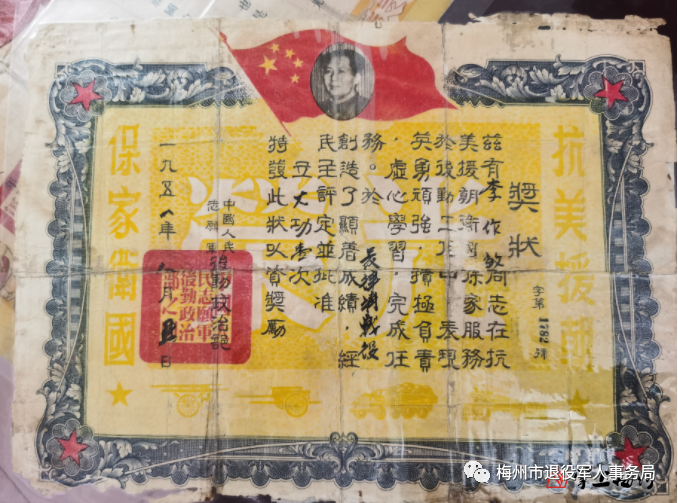 抗美援朝
獎狀
字第1782號
茲有李作敏同志在抗
美援朝衛國保家服務
於後勤工作中表現
英勇頑強，積極負責
，虛心學習，完成任
務。於長津湖戰役
創造了顯著成績，經
民主評定並批准
立大功壹次
特發此狀以資獎勵
中國人民
志願軍後勤政治部
一九五一年 月 日
保家衛國
梅州市退役军人事务局